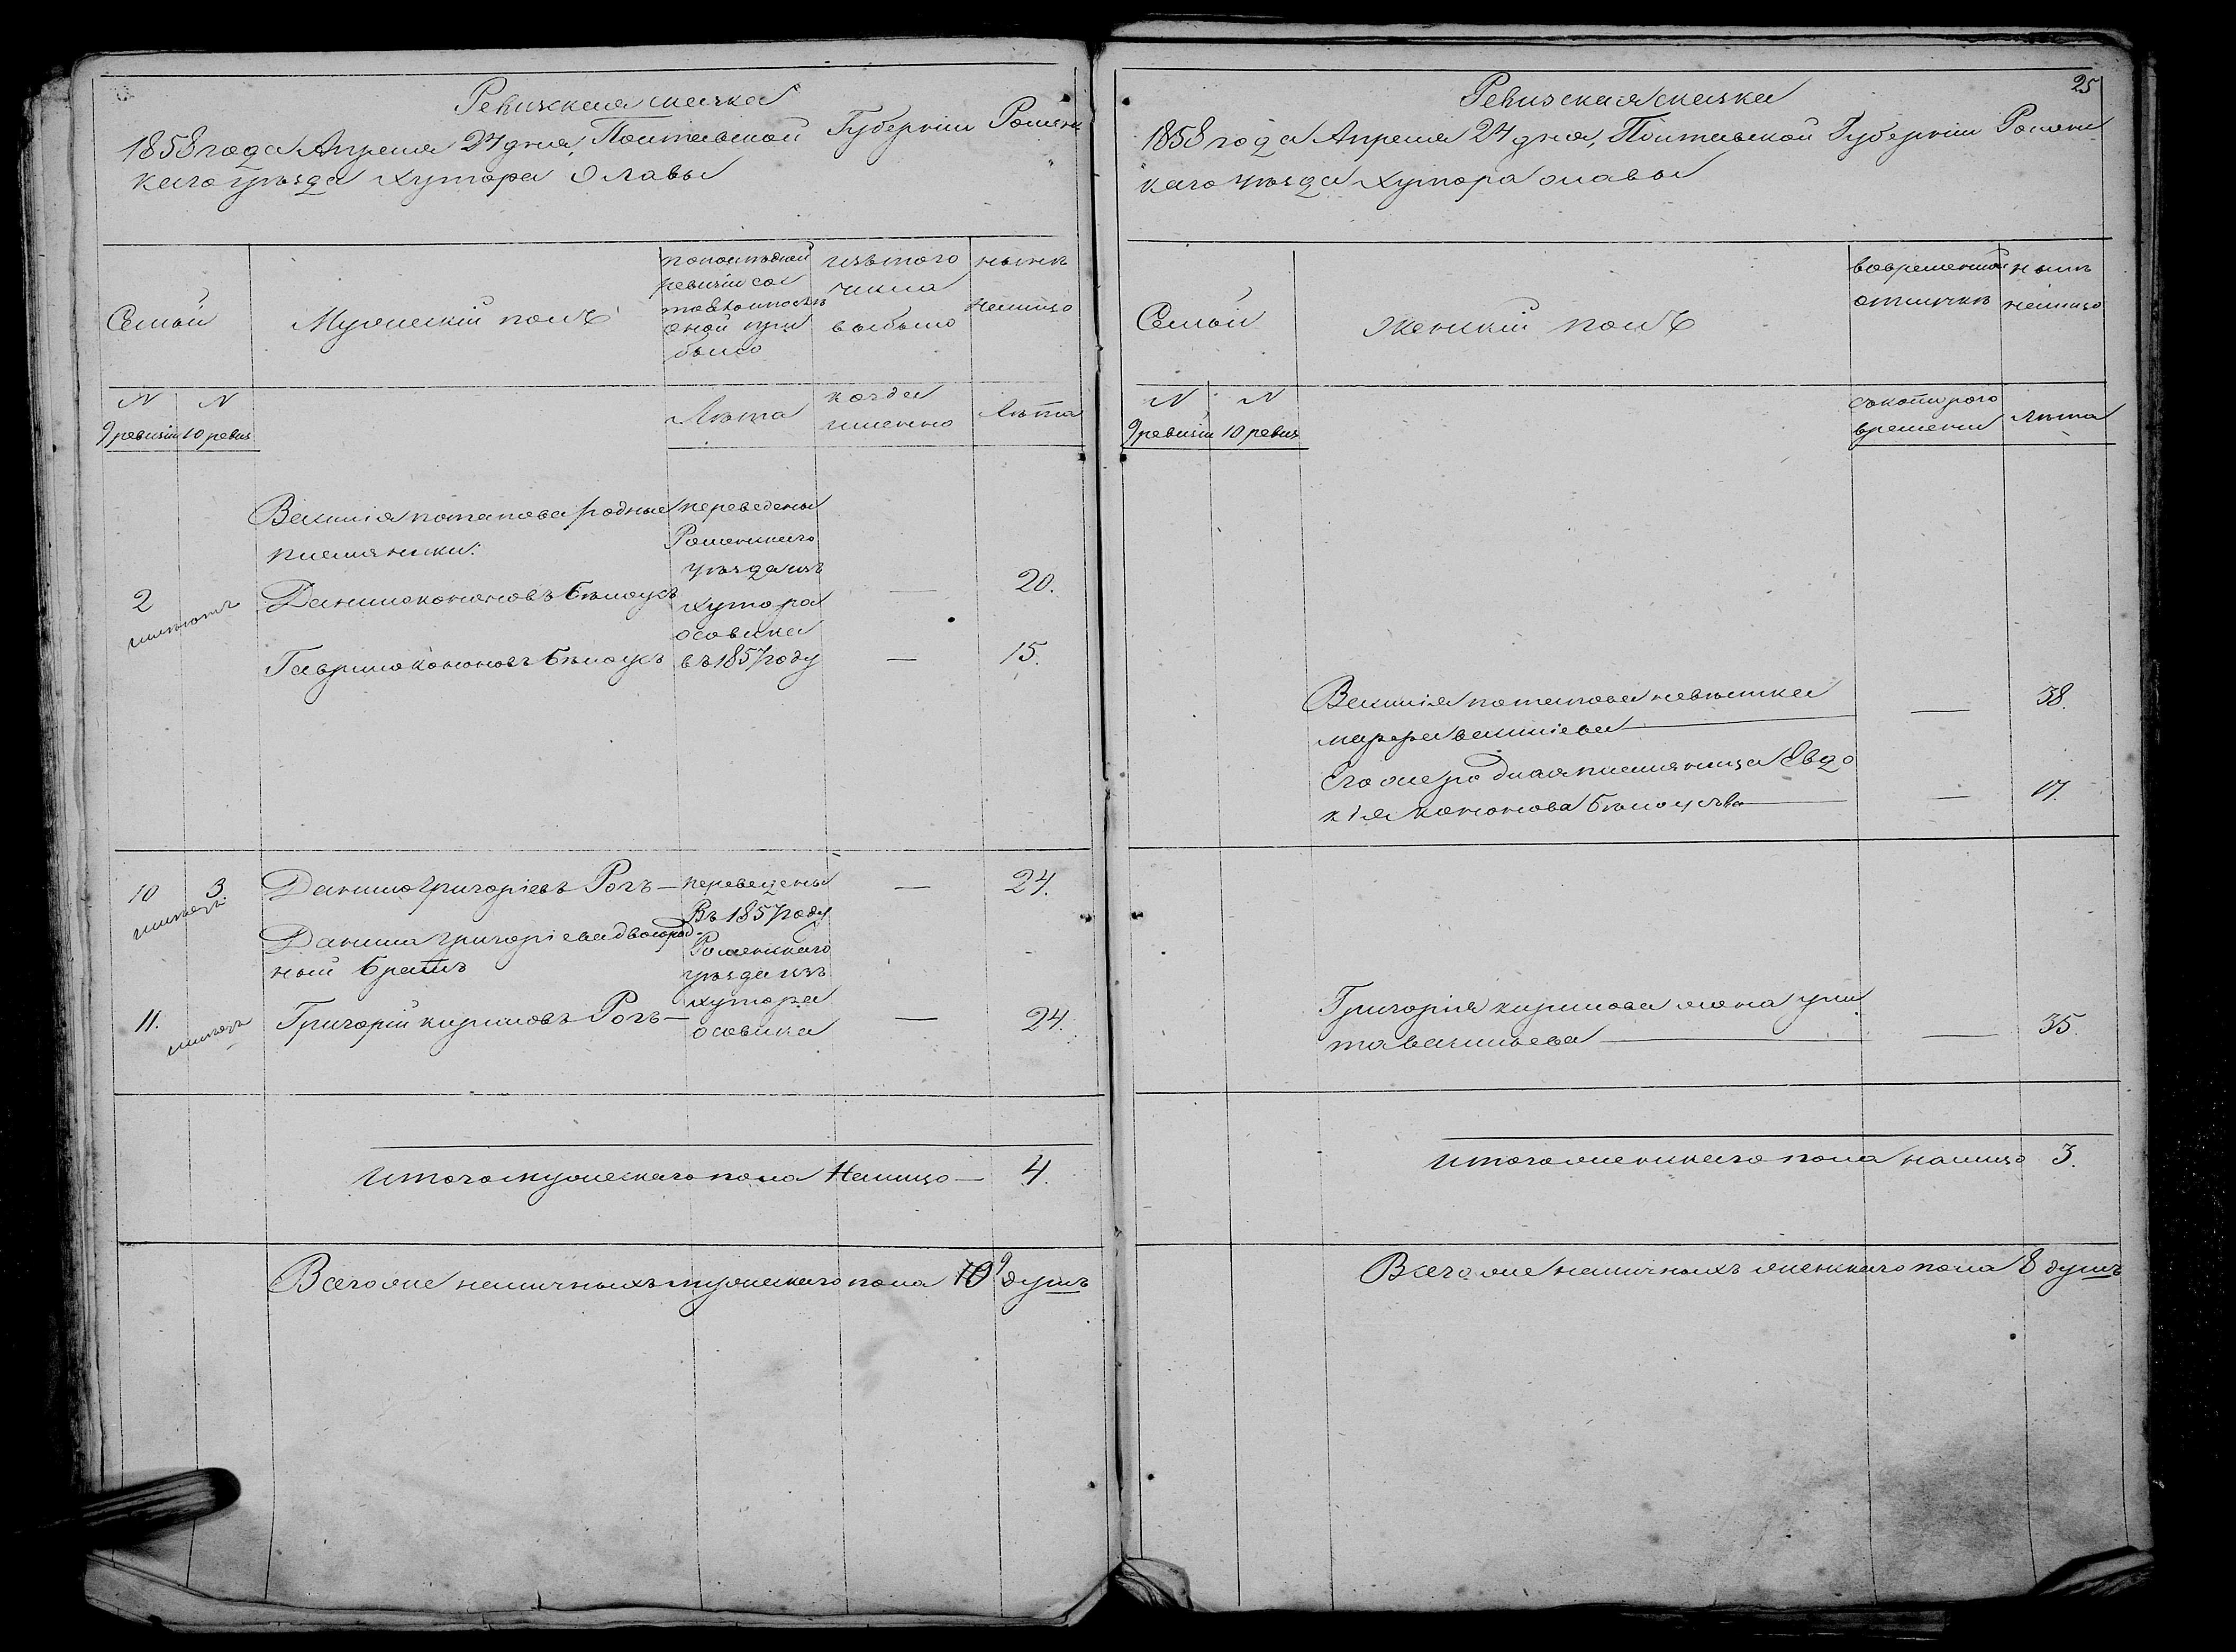 Ревижская сказка
1858 года Апреля 24 дня, Полтавской Губерніи Роменс
каго уѣзда Хутора Олавы
Семьи
Мужескій полъ
по последней
ревизіи со
оной при
было
изъ того
числа
выбыло
нынѣ
налицо
N N
9 ревизіи 10 ревиз
Лѣта
когда
именно
Лѣта
Василія Потапова родные
племянники:
переведены
Роменскаго
уѣзда изъ
хутора
осовика
въ 1857 году
2
Данило Кононовъ Бѣлоусъ — 20.
Гаврило Кононовъ Бѣлоусъ — 15.
10 3. Данило Григоріевъ Рогъ — 24.
переведены
Въ 1857 году
Роменскаго
уѣзда изъ
хутора
осовика
Данила Григоріева двоюрод-
ный братъ
11. Григорій Кириловъ Рогъ — — 24.
Итого мужескаго пола Налицо — 4.
Всего же наличныхъ мужескаго пола 10 9 душъ
25
Ревизская сказка
1858 года Апреля 24 дня, Полтавской Губерніи Роменс
каго уѣзда Хутора олавы
Семьи
Женскій полъ
во временной
отлучкѣ
нынѣ
налицо
N N
9 ревизіи 10 ревиз
съ котораго
времени
Лѣта
Василія Потапова невѣстка — 38.
марфа василіева
Его же родная племянница Евдо
кія Кононова Бѣлоусова — 17.
Григорія кирилова жена ули
та васильева — 35
Итого женскаго пола налицо 3.
Всего же наличныхъ женскаго пола 8 душъ